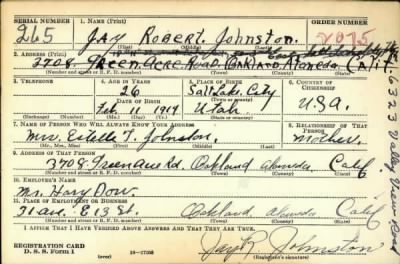 SERIAL NUMBER
1. NAME (Print)
ORDER NUMBER
265
JAY Robert Johnston
2075
(First) (Middle) (Last)
2. ADDRESS (Print)
3708 Green Acre Road Oakland Alameda Calif
(Number and street or R. F. D. number) (Town) (County) (State)
3. TELEPHONE
4. AGE IN YEARS
5. PLACE OF BIRTH
6. COUNTRY OF CITIZENSHIP
26
Salt Lake City
DATE OF BIRTH
Feb 11 1914
Utah
U.S.A.
(Exchange) (Number)
(Mo.) (Day) (Yr.)
(State or country)
7. NAME OF PERSON WHO WILL ALWAYS KNOW YOUR ADDRESS
8. RELATIONSHIP OF THAT PERSON
Mrs. Estelle T. Johnston
Mother
(Mr., Mrs., Miss) (First) (Middle) (Last)
9. ADDRESS OF THAT PERSON
3708 Greenacre Rd. Oakland Alameda Calif
(Number and street or R. F. D. number) (Town) (County) (State)
10. EMPLOYER'S NAME
Mr. Harry Dow
11. PLACE OF EMPLOYMENT OR BUSINESS
E 12 St. Oakland Alameda Calif
(Number and street or R. F. D. number) (Town) (County) (State)
I AFFIRM THAT I HAVE VERIFIED ABOVE ANSWERS AND THAT THEY ARE TRUE.
REGISTRATION CARD
D. S. S. Form 1
16-17105
Jay R Johnston
(Registrant's signature)
6323 Valley View Road